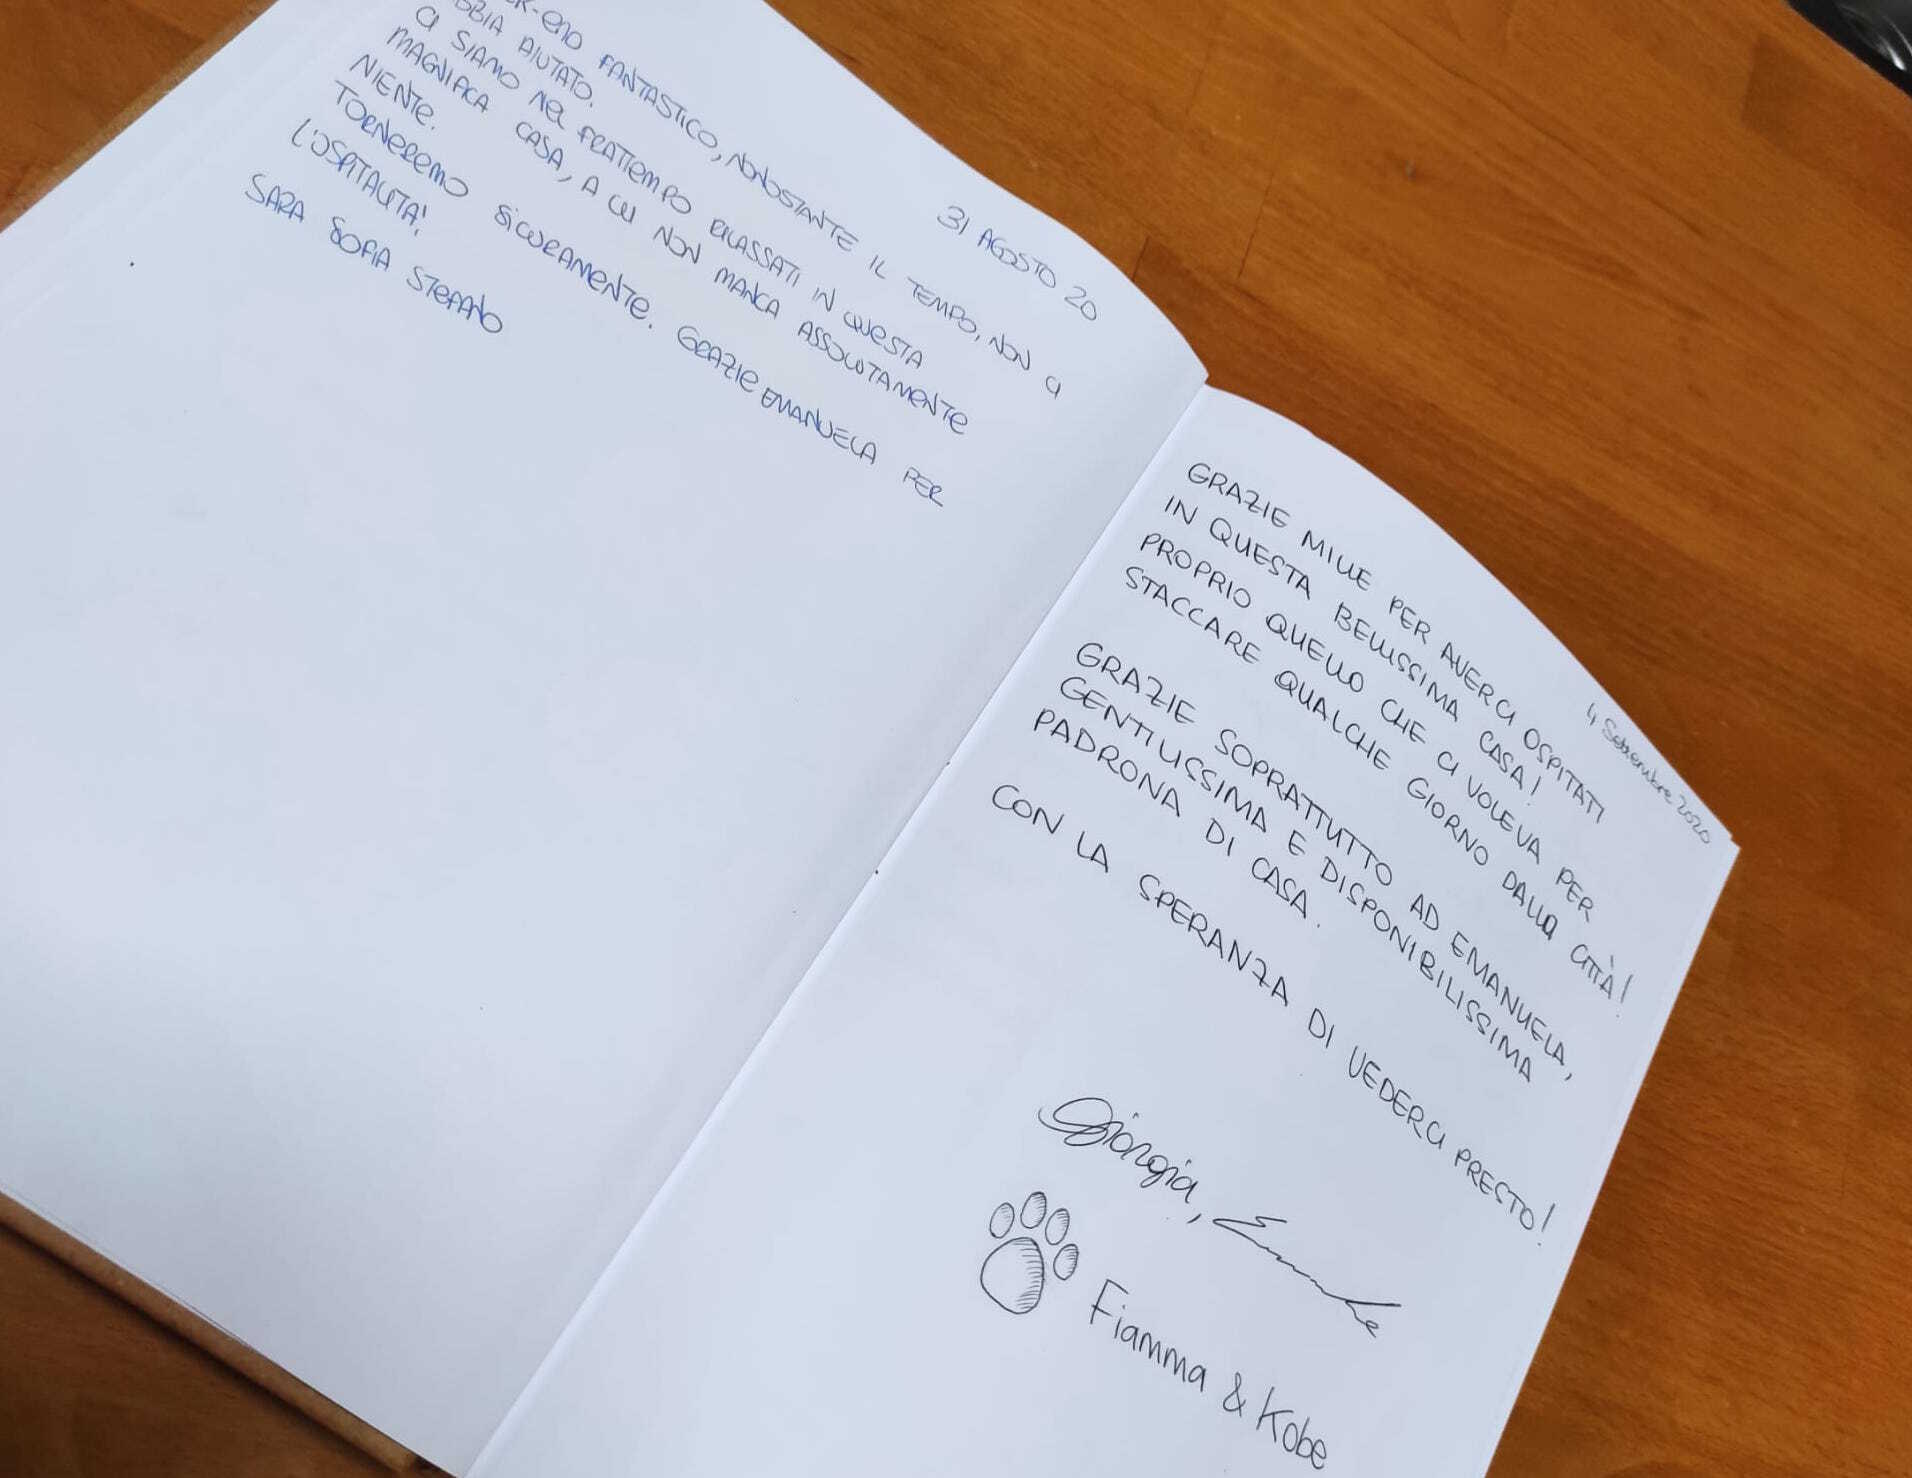 31 AGOSTO 20
FANTASTICO, NONOSTANTE IL TEMPO, NON CI
AIUTATO.
CI SIAMO NEL FRATTEMPO RILASSATI IN QUESTA
MAGNIFICA CASA, A CUI NON MANCA ASSOLUTAMENTE
NIENTE.
TORNEREMO SICURAMENTE. GRAZIE EMANUELA PER
L'OSPITALITA'!
SARA SOFIA STEFANO
4 Settembre 2020
GRAZIE MILLE PER AVERCI OSPITATI
IN QUESTA BELLISSIMA CASA!
PROPRIO QUELLO CHE CI VOLEVA PER
STACCARE QUALCHE GIORNO DALLA CITTÀ!
GRAZIE SOPRATTUTTO AD EMANUELA,
GENTILISSIMA E DISPONIBILISSIMA
PADRONA DI CASA.
CON LA SPERANZA DI VEDERCI PRESTO!
Giorgia,
Fiamma & Kobe